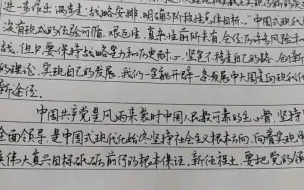 进一步作出"两步走"战略安排,明确分阶段任务目标。"中国式现代
没有现成的任务可循,艰巨性、复杂性前所未有,会经历许多风险和
战,但只要保持战略定力和历史耐心,坚定不移走自己的路,创新
的理论,实现自己的发展,我们一定能开辟一条发展中大国走向现代化
新途径。
中国共产党是风雨来袭时中国人民最可靠的主心骨,坚持
全面领导,是中国式现代化始终坚持社会主义根本方向,向着
伟大复兴目标砥砺前行的根本保证。新征程上,要把党的领